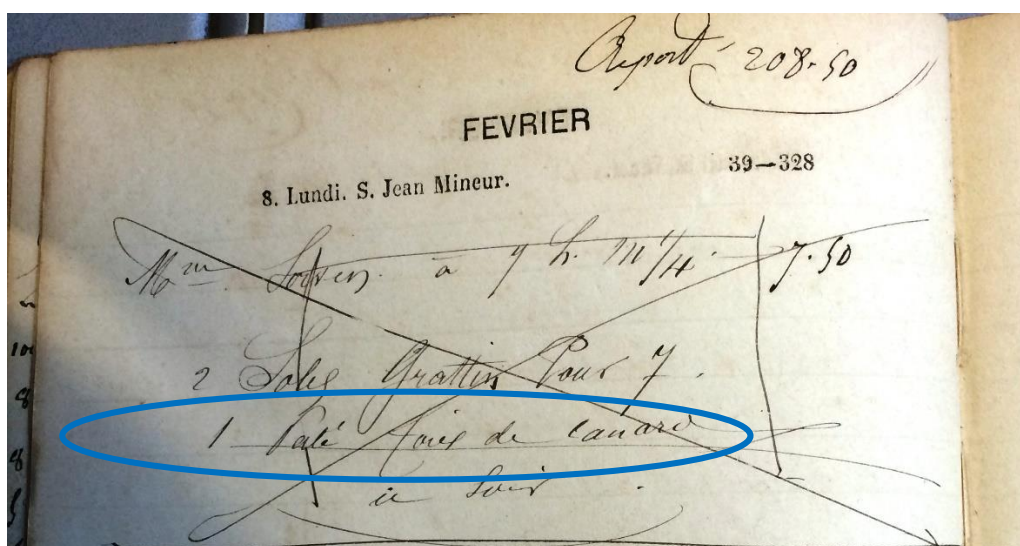 Report 208.50
FEVRIER
39—328
8. Lundi. S. Jean Mineur.
Mme à 7 h. m 1/4 7.50
2 Soles Grattin Pour 7.
1 Paté foies de canard
Soir